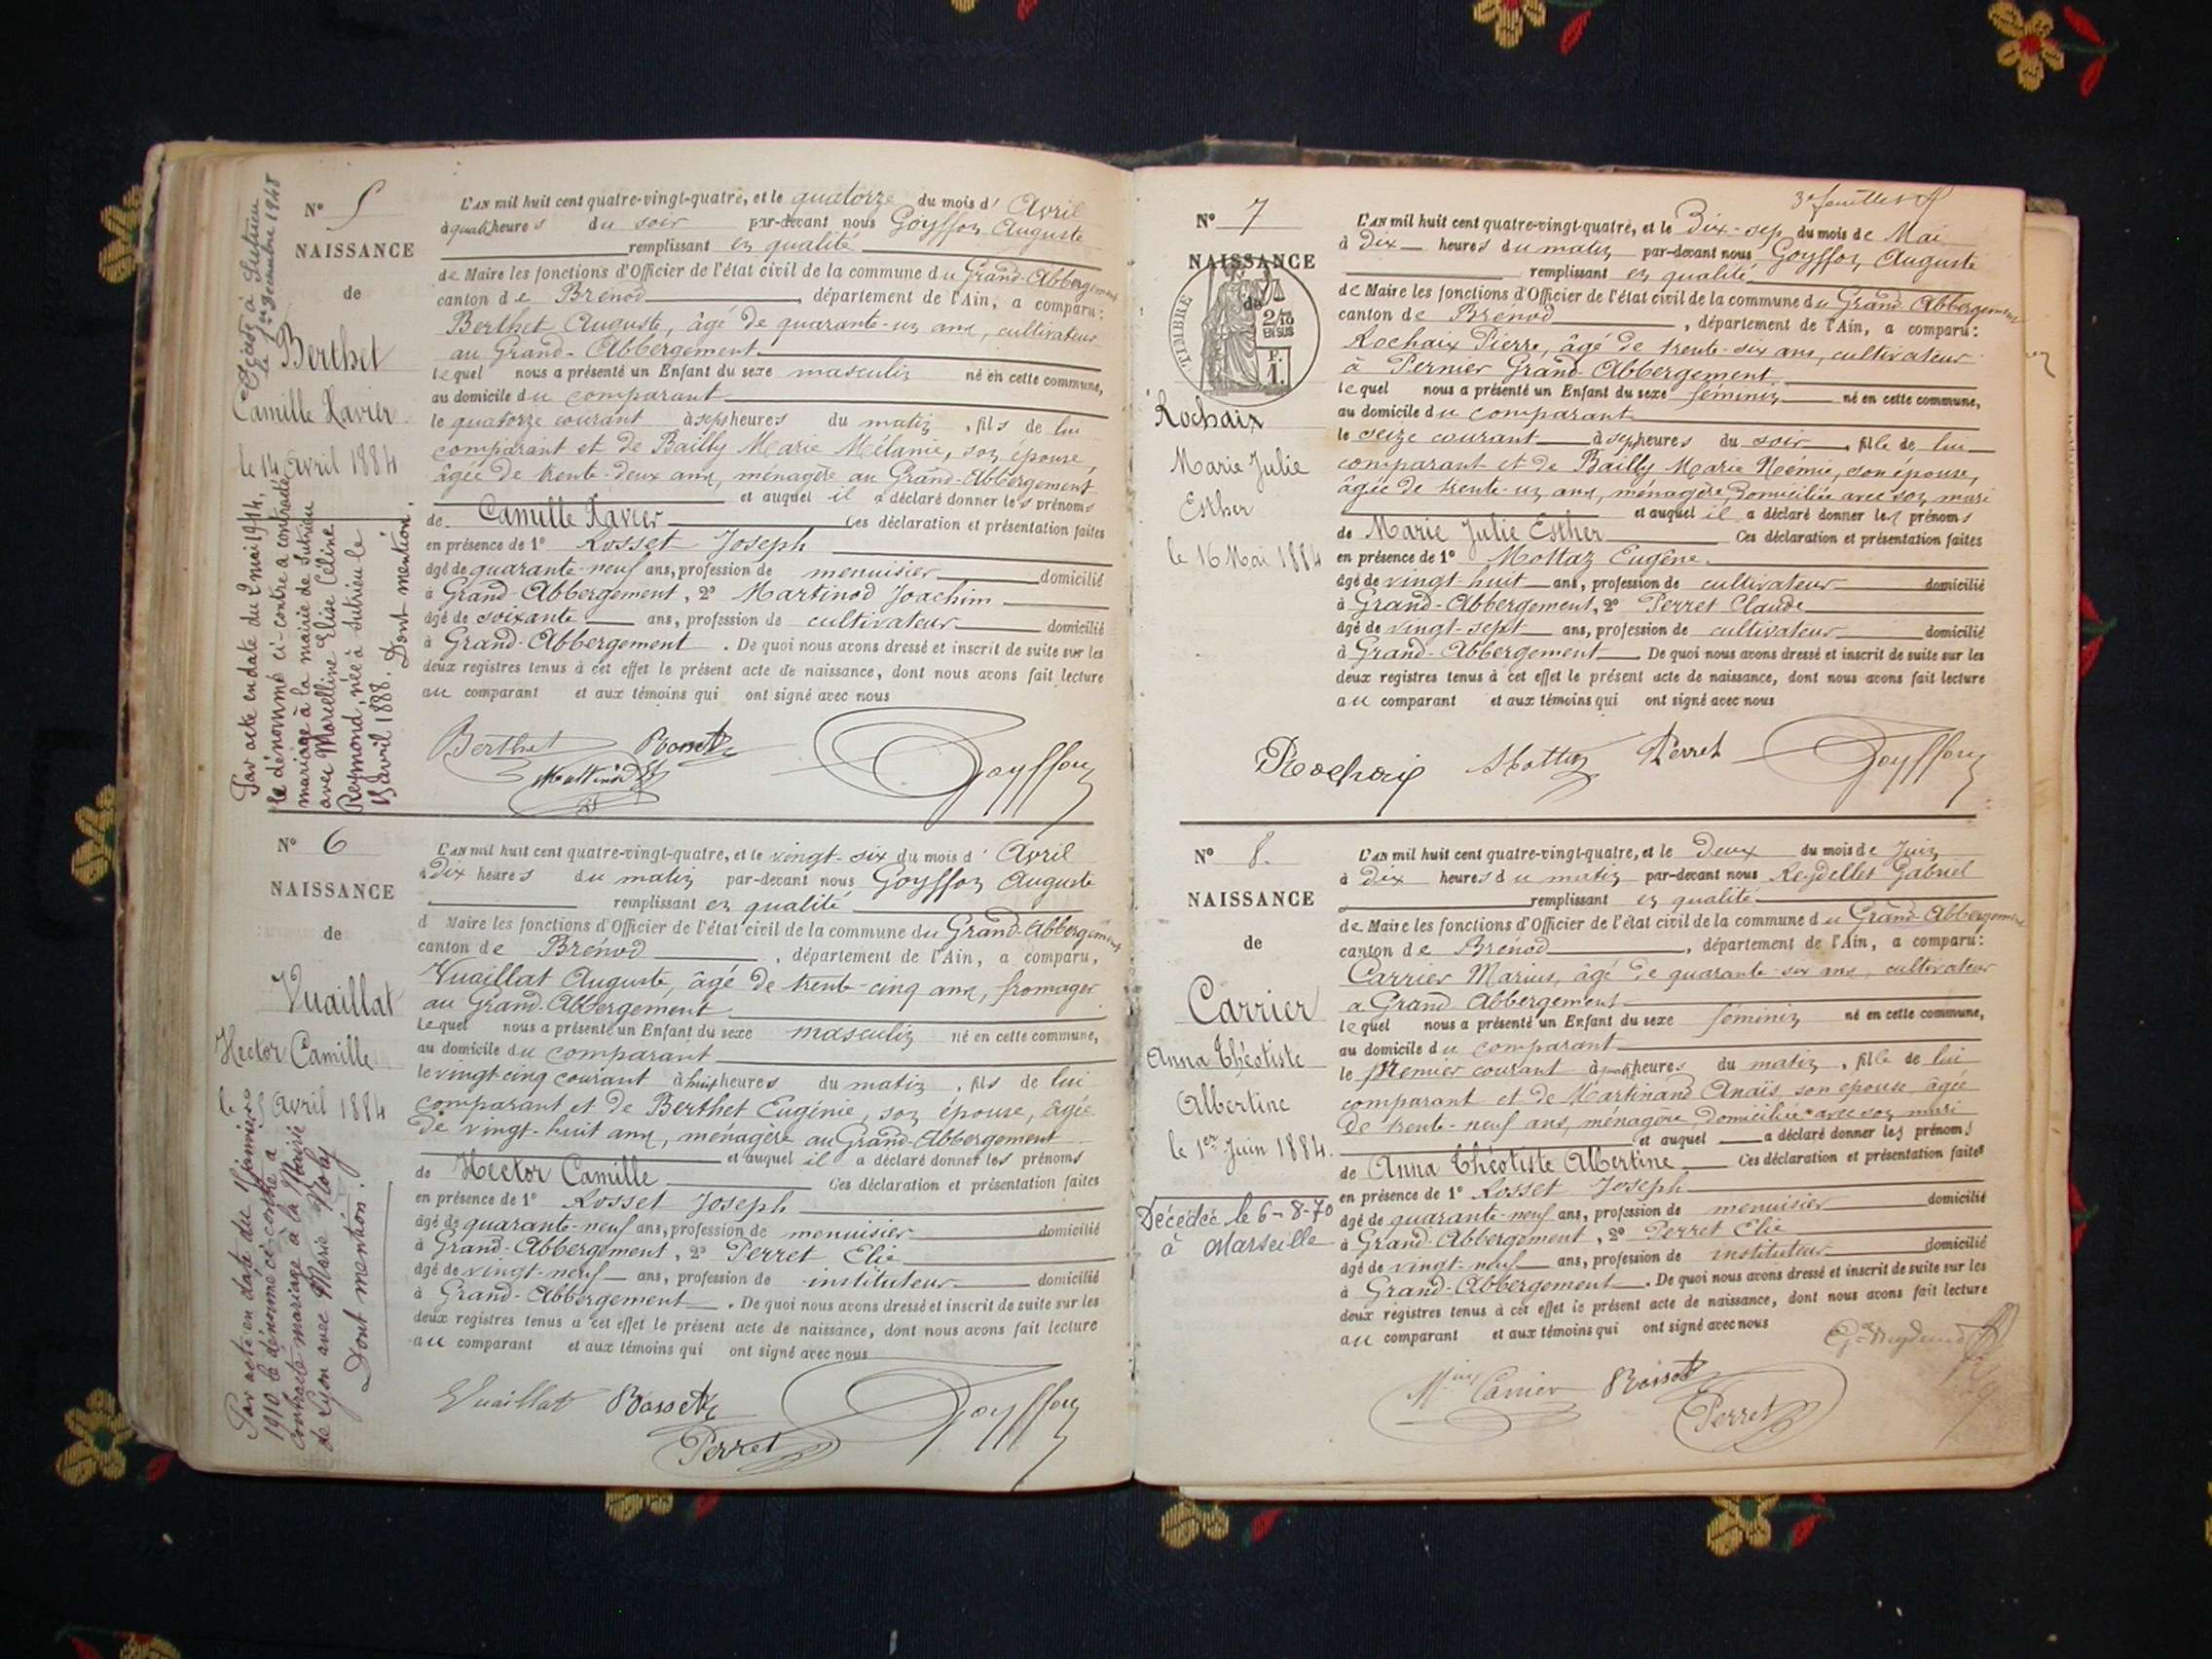 N° 5
NAISSANCE
de
Berthet
Camille Xavier
le 14 Avril 1884
Décédé à Sutrieu
le Décembre 1948
Par acte en date du 2 mai 1914,
le dénommé ci-contre a contracté
mariage à la mairie de Sutrieu
avec Morelline Elise Céline
Reymond, née à Sutrieu le
avril 1888. Dont mention.
L'AN mil huit cent quatre-vingt-quatre, et le quatorze du mois d' Avril
à quatre heures du soir par-devant nous Goyffon Auguste
remplissant en qualité
de Maire les fonctions d'Officier de l'état civil de la commune du Grand-Abbergement
canton de Brénod, département de l'Ain, a comparu:
Berthet Auguste, âgé de quarante-un ans, cultivateur
au Grand-Abbergement
lequel nous a présenté un Enfant du sexe masculin né en cette commune,
au domicile du comparant
le quatorze courant à sept heures du matin, fils de lui
comparant et de Bailly Marie Mélanie, son épouse,
âgée de trente-deux ans, ménagère au Grand-Abbergement
et auquel il a déclaré donner les prénoms
de Camille Xavier Ces déclaration et présentation faites
en présence de 1° Rosset Joseph
âgé de quarante-neuf ans, profession de menuisier domicilié
à Grand-Abbergement, 2° Martinod Joachim
âgé de soixante ans, profession de cultivateur domicilié
à Grand-Abbergement. De quoi nous avons dressé et inscrit de suite sur les
deux registres tenus à cet effet le présent acte de naissance, dont nous avons fait lecture
au comparant et aux témoins qui ont signé avec nous
Berthet Rosset
Martinod Goyffon
N° 6
NAISSANCE
de
Vuaillat
Hector Camille
le 25 Avril 1884
Par acte en date du janvier
1910 le dénommé ci-contre a
contracté mariage à la Mairie
de Lyon avec Marie
Dont mention.
L'AN mil huit cent quatre-vingt-quatre, et le vingt-six du mois d' Avril
à Dix heures du matin par-devant nous Goyffon Auguste
remplissant en qualité
d Maire les fonctions d'Officier de l'état civil de la commune du Grand-Abbergement
canton de Brénod, département de l'Ain, a comparu,
Vuaillat Auguste, âgé de trente-cinq ans, fromager
au Grand-Abbergement
lequel nous a présenté un Enfant du sexe masculin né en cette commune,
au domicile du comparant
le vingt-cinq courant à huit heures du matin, fils de lui
comparant et de Berthet Eugénie, son épouse, âgée
de vingt-huit ans, ménagère au Grand-Abbergement
et auquel il a déclaré donner les prénoms
de Hector Camille Ces déclaration et présentation faites
en présence de 1° Rosset Joseph
âgé de quarante-neuf ans, profession de menuisier domicilié
à Grand-Abbergement, 2° Perret Elie
âgé de vingt-neuf ans, profession de instituteur domicilié
à Grand-Abbergement. De quoi nous avons dressé et inscrit de suite sur les
deux registres tenus à cet effet le présent acte de naissance, dont nous avons fait lecture
au comparant et aux témoins qui ont signé avec nous
Vuaillat Rosset Goyffon
Perret
3e feuillet
N° 7
NAISSANCE
de
TIMBRE
2/10
EN SUS
F.
1.
Rochaix
Marie Julie
Esther
le 16 Mai 1884
L'AN mil huit cent quatre-vingt-quatre, et le Dix-sep du mois de Mai
à Dix heures du matin par-devant nous Goyffon Auguste
remplissant en qualité
de Maire les fonctions d'Officier de l'état civil de la commune du Grand-Abbergement
canton de Brenod, département de l'Ain, a comparu:
Rochaix Pierre, âgé de trente-six ans, cultivateur
à Pernier Grand-Abbergement
lequel nous a présenté un Enfant du sexe féminin né en cette commune,
au domicile du comparant
le seize courant à sept heures du soir, fille de lui
comparant et de Bailly Marie Noémie, son épouse,
âgée de trente-un ans, ménagère, Domiciliée avec son mari
et auquel il a déclaré donner les prénoms
de Marie Julie Esther Ces déclaration et présentation faites
en présence de 1° Mottaz Eugène
âgé de vingt-huit ans, profession de cultivateur domicilié
à Grand-Abbergement, 2° Perret Claude
âgé de vingt-sept ans, profession de cultivateur domicilié
à Grand-Abbergement De quoi nous avons dressé et inscrit de suite sur les
deux registres tenus à cet effet le présent acte de naissance, dont nous avons fait lecture
au comparant et aux témoins qui ont signé avec nous
Rochaix Mottaz Perret Goyffon
N° 8.
NAISSANCE
de
Carrier
Anna Théotiste
Albertine
le 1er Juin 1884.
Décédée le 6-8-70
à Marseille
L'AN mil huit cent quatre-vingt-quatre, et le Deux du mois de Juin
à Dix heures du matin par-devant nous Reydellet Gabriel
remplissant en qualité
de Maire les fonctions d'Officier de l'état civil de la commune du Grand-Abbergement
canton de Brénod, département de l'Ain, a comparu:
Carrier Marius, âgé de quarante-six ans, cultivateur
a Grand Abbergement
lequel nous a présenté un Enfant du sexe féminin né en cette commune,
au domicile du comparant
le premier courant à quatre heures du matin, fille de lui
comparant et de Martinand Anaïs son épouse, âgée
de trente-neuf ans, ménagère, Domiciliée avec son mari
et auquel a déclaré donner les prénoms
de Anna Théotiste Albertine Ces déclaration et présentation faites
en présence de 1° Rosset Joseph
âgé de quarante-neuf ans, profession de menuisier domicilié
à Grand-Abbergement, 2° Perret Elie
âgé de vingt-neuf ans, profession de instituteur domicilié
à Grand-Abbergement. De quoi nous avons dressé et inscrit de suite sur les
deux registres tenus à cet effet le présent acte de naissance, dont nous avons fait lecture
au comparant et aux témoins qui ont signé avec nous
Carrier Rosset
Perret